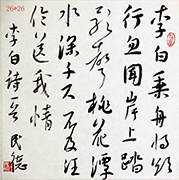 26*26
李白乘舟將欲
行忽聞岸上踏
歌聲桃花潭
水深千尺不及汪
倫送我情
李白詩一首